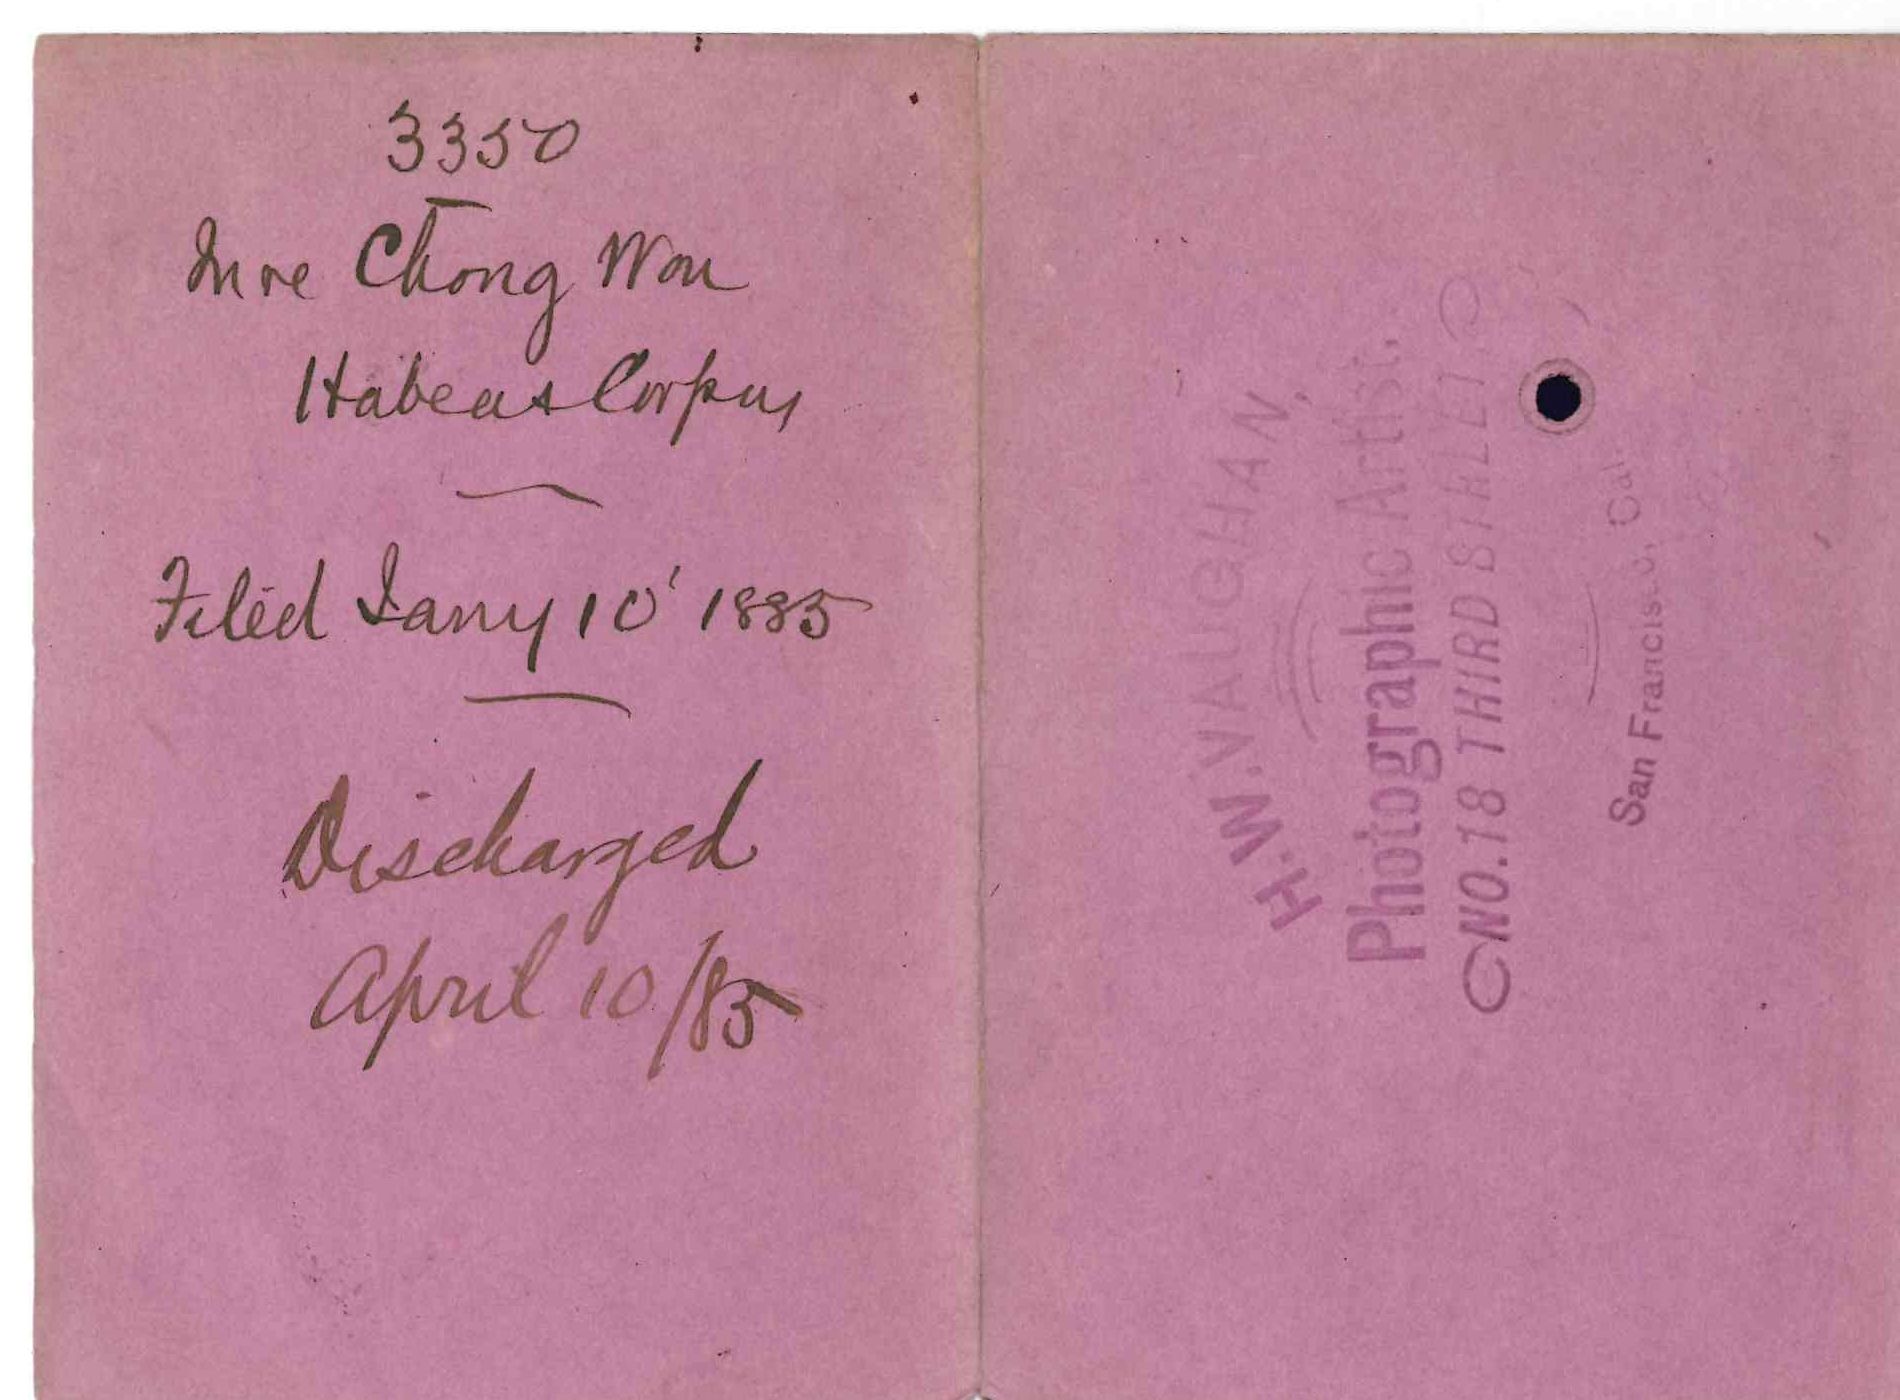 3350
In re Chong Wou
Habeas Corpus
Filed Jany 10' 1885
Discharged
April 10/85
H.W.VAUGHAN,
Photographic Artist.
NO.18 THIRD STREET
San Francisco, Cal